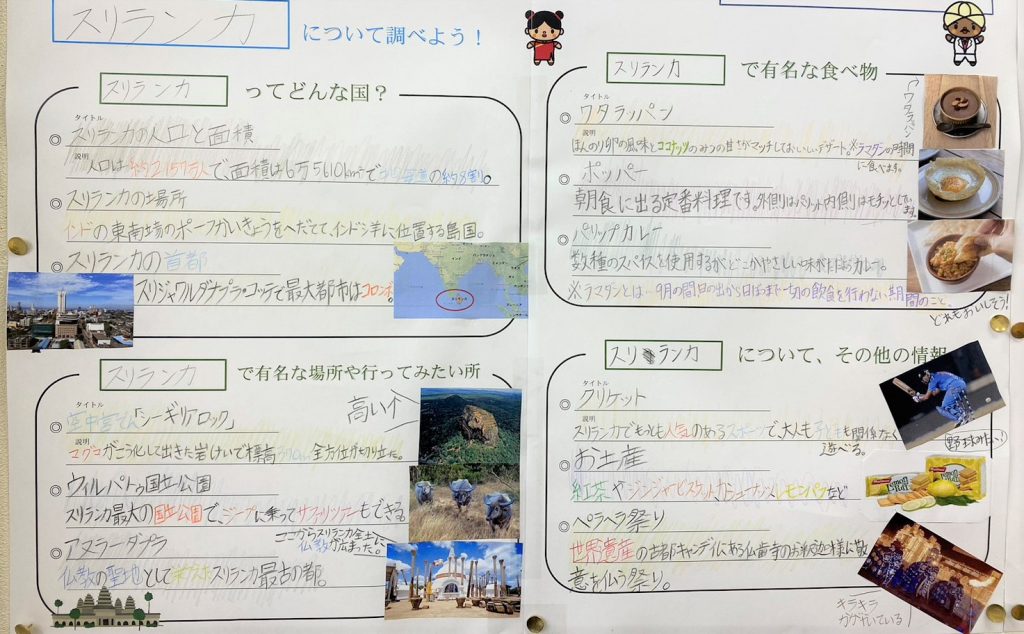 スリランカ について調べよう!
スリランカ ってどんな国?
タイトル
◎ スリランカの人口と面積
説明
人口は約2157万人で、面積は6万5610km²で、 北海道の約8割。
◎ スリランカの場所
インドの東南端のポークかいきょうをへだてて、インド洋に位置する島国。
◎ スリランカの首都
スリジャワルダナプラ・コッテで最大都市はコロンボ。
スリランカ で有名な場所や行ってみたい所
タイトル
◎ 空中宮でん「シーギリヤロック」
高い↑
説明
マグマがこう化して出きた岩けいで標高 全方位が切り立った。
◎ ウィルパトゥ国立公園
スリランカ最大の国立公園で、ジープに乗ってサファリツアーもできる。
◎ アヌラーダプラ
ここからスリランカ全土に、
仏教が広まった。
仏教の聖地として栄えたスリランカ最古の都。
スリランカ で有名な食べ物
タイトル
◎ ワタラッパン
説明
ほんのり卵の風味とココナッツのみつの甘さがマッチしておいしいデザート。※ラマダンの時間
に食べます。
ワタラパン
◎ ホッパー
朝食に出る定番料理です。外側はパリット内側はモチッとしてい
ます。
◎ パリップカレー
数種のスパイスを使用するがどこかやさしい味がただようカレー。
※ラマダンとは…9月の間日の出から日ぼつまで一切の飲食を行わない期間のこと。
どれもおいしそう!
スリランカ について、その他の情報
タイトル
◎ クリケット
説明
スリランカでもっとも人気のあるスポーツで、大人も子どもも関係なく
遊べる。
野球みたい!
◎ お土産
紅茶やジンジャービスケット、カシューナッツ、レモンパフなど
◎ ペラヘラ祭り
世界遺産の古都キャンディにある仏歯寺のお釈迦様に敬
意を仏う祭り。
キラキラ
かがやいている